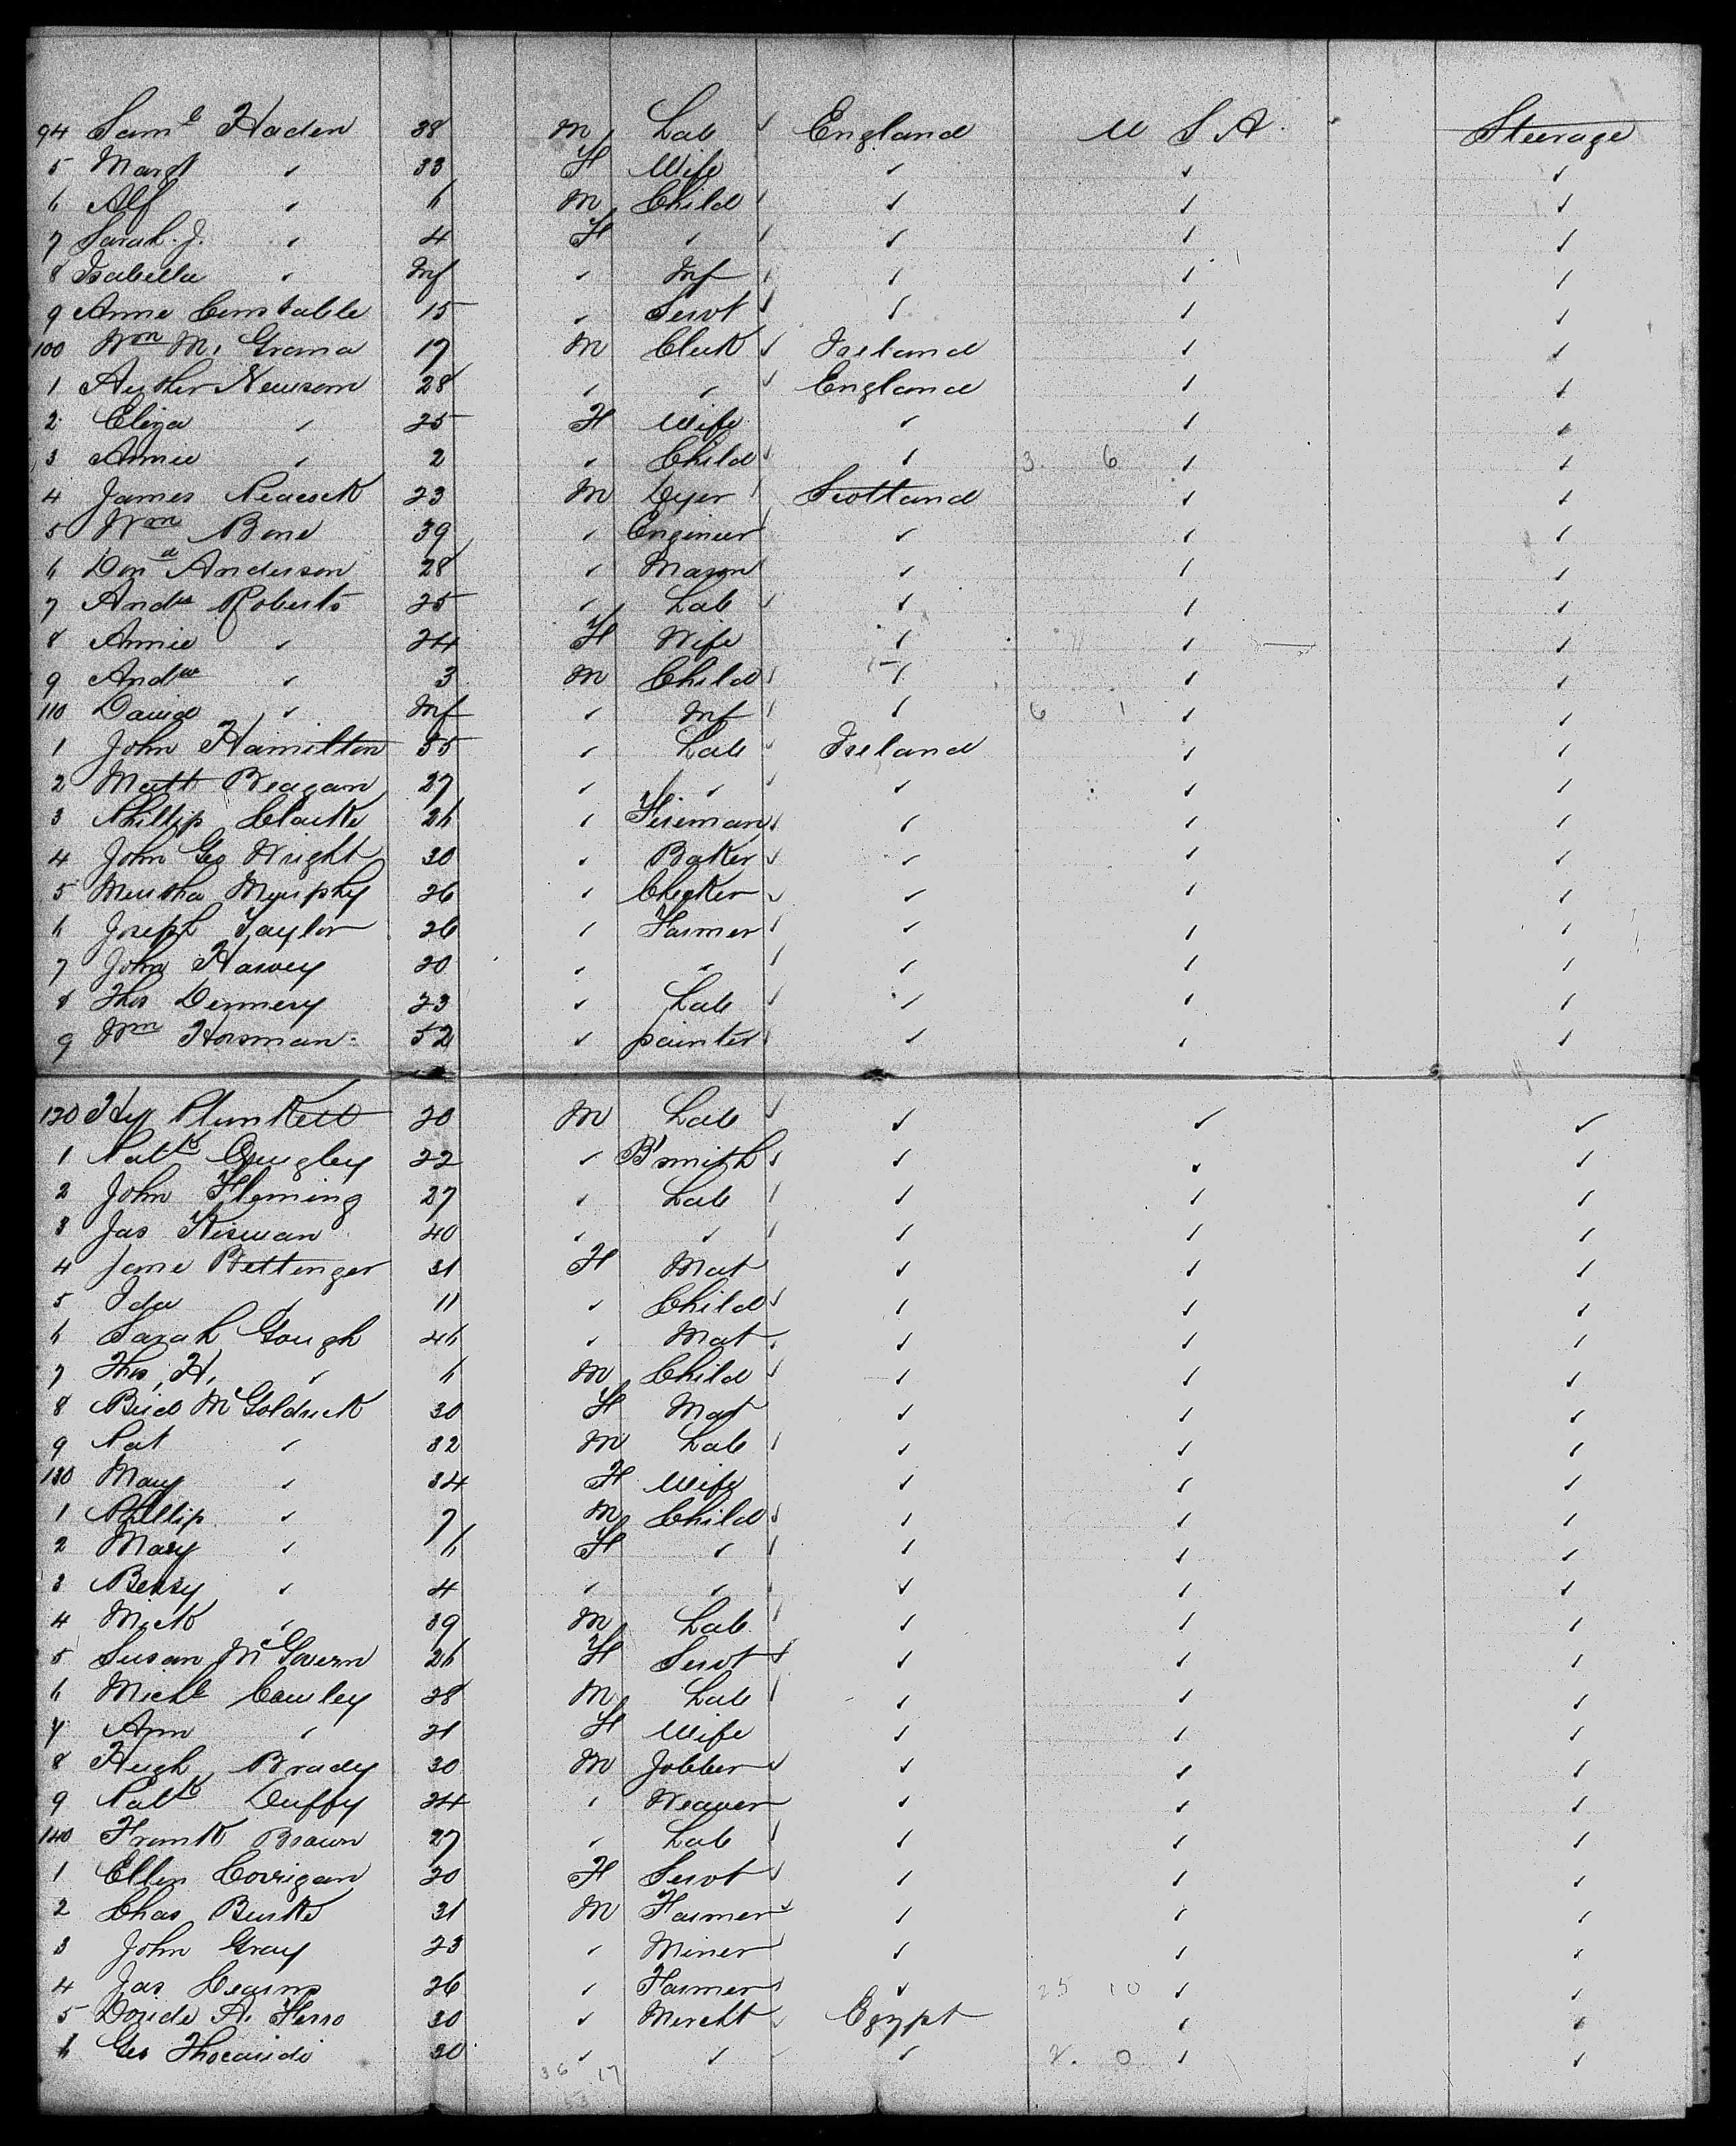 94 Saml Haden 38 M Lab ✓ England U S A Steerage
5 Margt ✓ 33 F Wife ✓ ✓ ✓
6 Alf ✓ 6 M Child ✓ ✓ ✓ ✓
7 Sarah. J. ✓ 4 F ✓ ✓ ✓ ✓ ✓
8 Isabella ✓ Inf ✓ Inf ✓ ✓ ✓ ✓
9 Anne Constable 15 ✓ Servt ✓ ✓ ✓ ✓
100 Wm M. 17 M Clerk ✓ Ireland ✓ ✓
1 Newsom 28 ✓ ✓ ✓ England ✓ ✓
2 Eliza ✓ 25 F Wife ✓ ✓ ✓
3 Annie ✓ 2 ✓ Child ✓ ✓ 3. 6 ✓ ✓
4 James Peacock 23 M Dyer ✓ Scotland ✓ ✓
5 Wm Bone 39 ✓ Engineer ✓ ✓ ✓ ✓
6 Dond Anderson 28 ✓ Mason ✓ ✓ ✓
7 Andw Roberts 25 ✓ Lab ✓ ✓ ✓ ✓
8 Annie ✓ 24 F Wife ✓ ✓ ✓
9 Andw ✓ 3 M Child ✓ ✓ ✓ ✓
110 David ✓ Inf ✓ Inf ✓ ✓ 6 1 ✓ ✓
1 John Hamilton 55 ✓ Lab ✓ Ireland ✓ ✓
2 Matt Reagan 27 ✓ ✓ ✓ ✓ ✓ ✓
3 Phillip Clarke 26 ✓ Fireman ✓ ✓ ✓ ✓
4 John Geo Wright 30 ✓ Baker ✓ ✓ ✓ ✓
5 Murphy 26 ✓ Checker ✓ ✓ ✓ ✓
6 Joseph Taylor 26 ✓ Farmer ✓ ✓ ✓ ✓
7 John Harvey 20 ✓ ✓ ✓ ✓ ✓ ✓
8 Thos Dennery 23 ✓ Lab ✓ ✓ ✓ ✓
9 Wm Horsman 52 ✓ painter ✓ ✓ ✓ ✓
120 Hy Plunkett 20 M Lab ✓ ✓ ✓ ✓
1 Patk Quigley 22 ✓ B'smith ✓ ✓ ✓ ✓
2 John Fleming 27 ✓ Lab ✓ ✓ ✓ ✓
3 Jas Kiswan 40 ✓ ✓ ✓ ✓ ✓ ✓
4 Jane Bettinger 31 F Mat ✓ ✓ ✓
5 Ida ✓ 11 ✓ Child ✓ ✓ ✓ ✓
6 Sarah Gough 46 ✓ Mat ✓ ✓ ✓ ✓
7 Thos, H, ✓ 6 M Child ✓ ✓ ✓ ✓
8 McGoldrick 30 F Mat ✓ ✓ ✓
9 Pat ✓ 32 M Lab ✓ ✓ ✓ ✓
130 Mary ✓ 34 F Wife ✓ ✓ ✓
1 Phillip ✓ 7 M Child ✓ ✓ ✓ ✓
2 Mary ✓ 6 F ✓ ✓ ✓ ✓ ✓
3 Bessy ✓ 4 ✓ ✓ ✓ ✓ ✓ ✓
4 Mick ✓ 39 M Lab ✓ ✓ ✓ ✓
5 Susan McGovern 26 F Servt ✓ ✓ ✓ ✓
6 Michl Cawley 28 M Lab ✓ ✓ ✓ ✓
7 Ann ✓ 21 F Wife ✓ ✓ ✓
8 Hugh Brady 30 M Jobber ✓ ✓ ✓ ✓
9 Patk Duffy 24 ✓ Weaver ✓ ✓ ✓
140 Frank Brown 27 ✓ Lab ✓ ✓ ✓ ✓
1 Ellen Corrigan 20 F Servt ✓ ✓ ✓ ✓
2 Chas Burke 31 M Farmer ✓ ✓ ✓ ✓
3 John Gray 23 ✓ Miner ✓ ✓ ✓
4 Jas 26 ✓ Farmer ✓ ✓ 25 10 ✓ ✓
5 A. 30 ✓ Mercht ✓ Egypt ✓ ✓
6 Geo 30 ✓ ✓ ✓ ✓ 2. 0 ✓ ✓
36 17
53